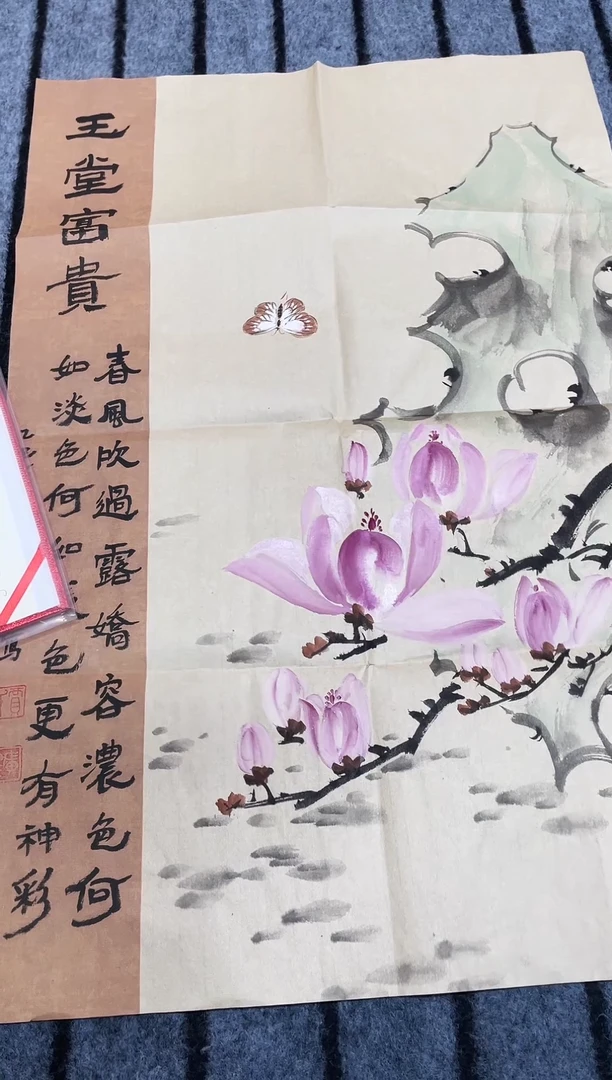 王堂富貴
春風吹過露嬌容濃色何
如淡色何如色更有神彩